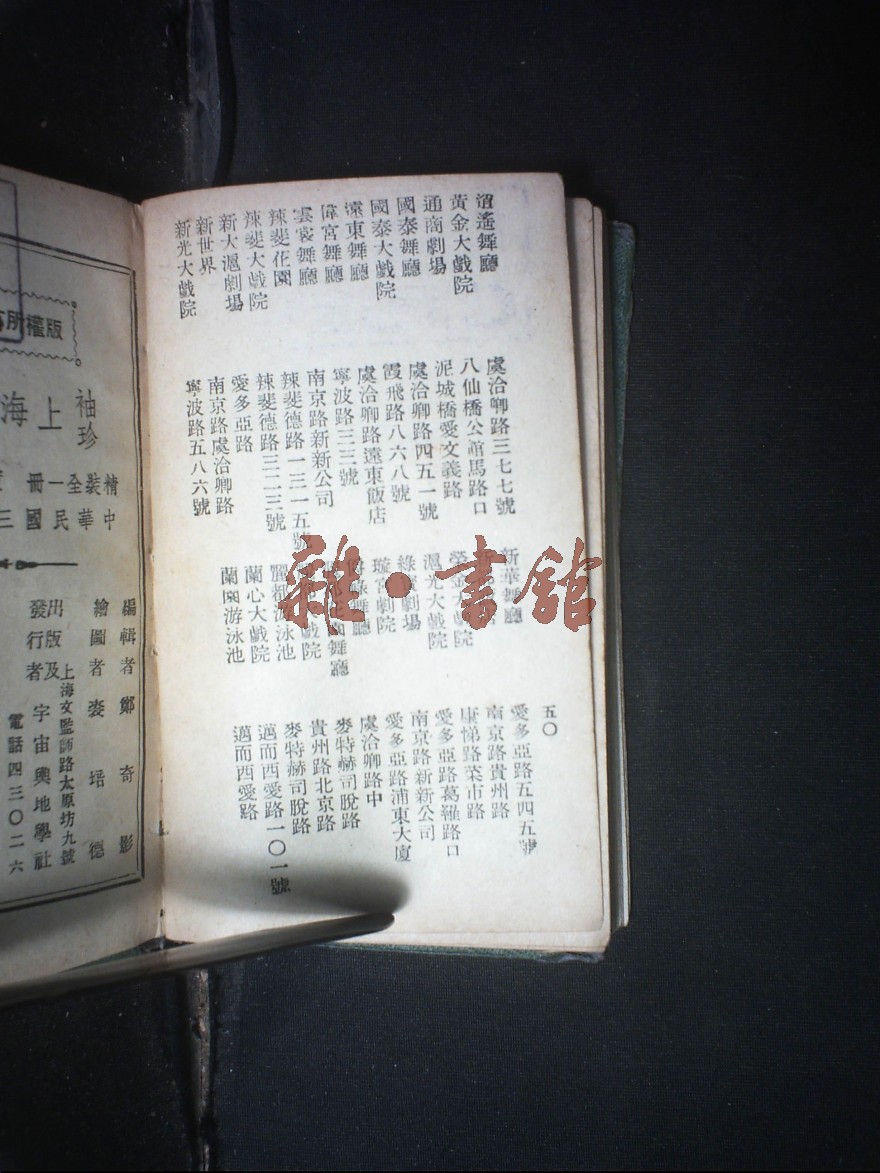 五〇
逍遙舞廳 虞洽卿路三七七號
黃金大戲院 八仙橋公館馬路口
通商劇場 泥城橋愛文義路
國泰舞廳 虞洽卿路四五一號
國泰大戲院 霞飛路八六八號
遠東舞廳 虞洽卿路遠東飯店
偉宮舞廳 寧波路三三號
雲裳舞廳 南京路新新公司
辣斐花園 辣斐德路一三一五號
辣斐大戲院 辣斐德路三二三號
新大滬劇場 愛多亞路
新世界 南京路虞洽卿路
新光大戲院 寧波路五八六號
新華舞廳 愛多亞路五四五號
南京路貴州路
戲院 康悌路菜市路
滬光大戲院 愛多亞路葛羅路口
綠 劇場 南京路新新公司
璇宮劇院 愛多亞路浦東大廈
舞廳 虞洽卿路中
舞廳 麥特赫司脫路
戲院 貴州路北京路
麗都游泳池 麥特赫司脫路
蘭心大戲院 邁而西愛路一〇一號
蘭園游泳池 邁而西愛路
雜·書館
所權版
袖珍
上海
精裝全一冊
中華民國三
編輯者 鄭奇影
繪圖者 培德
出版及發行者 宇宙輿地學社
上海文監師路太原坊九號
電話四三〇二六